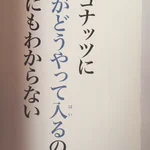 コナッツに
がどうやって入るの
はい
にもわからない